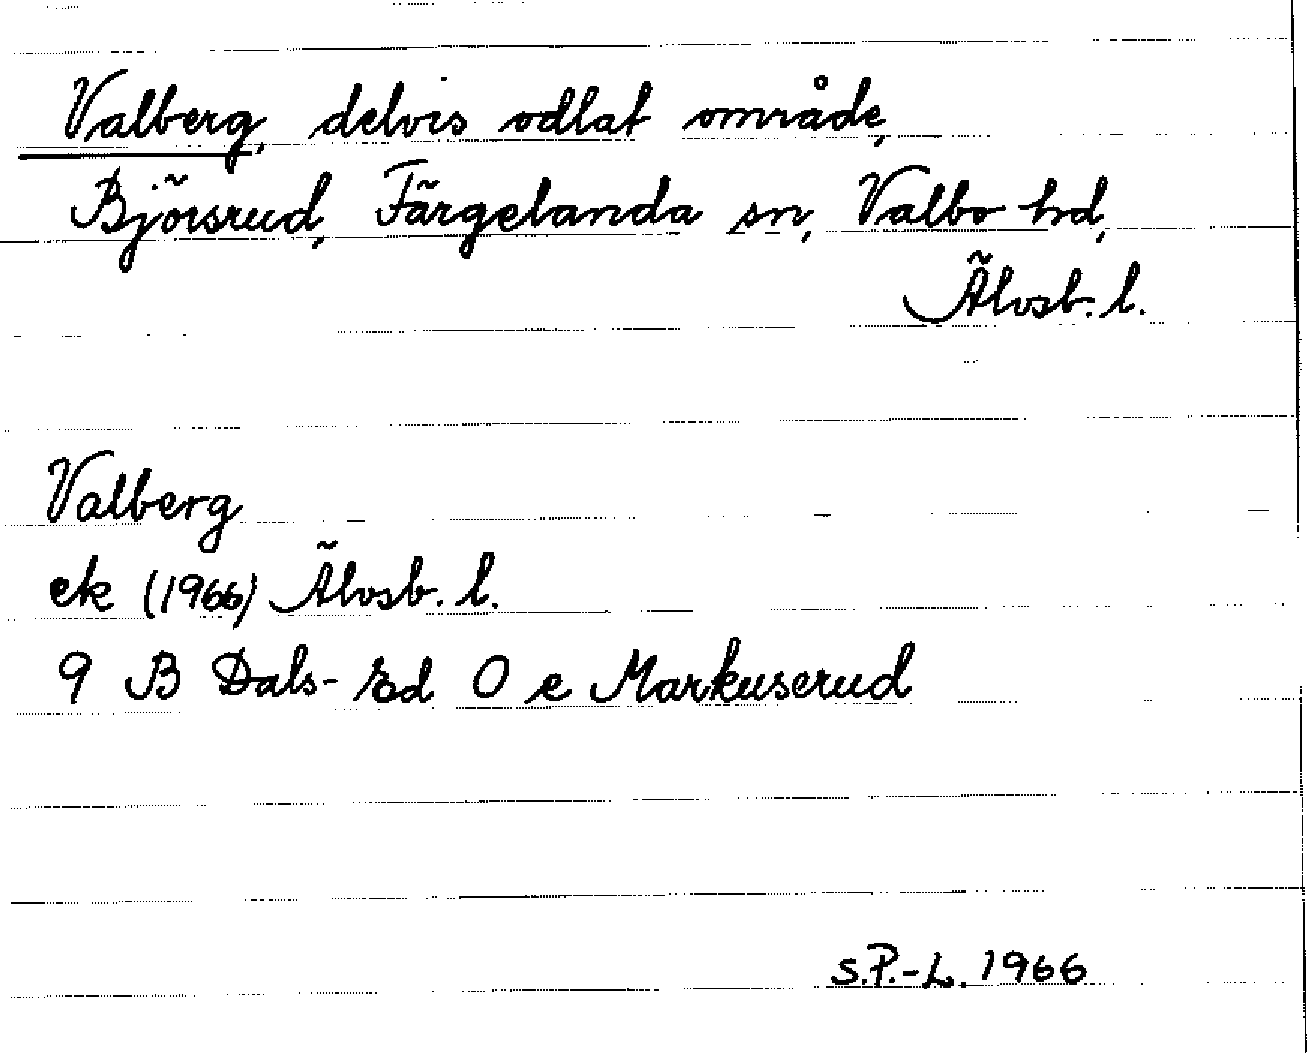 Valberg, delvis odlat område,
Björsrud, Färgelanda sn, Valbo hd,
Älvsb. l.
Valberg
ek (1966) Älvsb. l.
9 B Dals-Ed O e Markuserud
S.P.-L. 1966